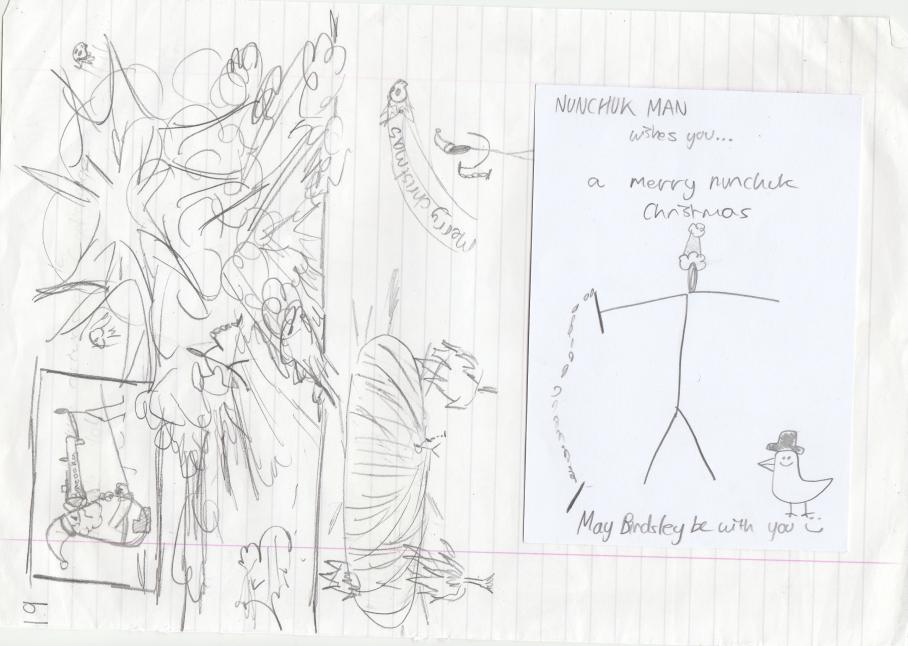 Merry christmas
NUNCHUK MAN
wishes you...
a merry nunchuk
Christmas
May Birdsley be with you
19